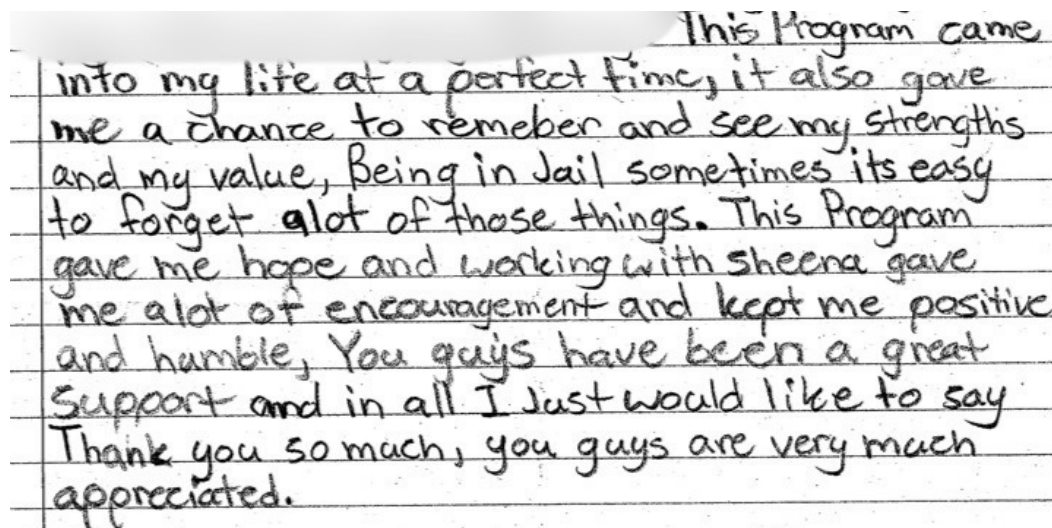 This Program came
into my life at a perfect time, it also gave
me a chance to remeber and see my strengths
and my value, Being in Jail sometimes its easy
to forget alot of those things. This Program
gave me hope and working with sheena gave
me alot of encouragement and kept me positive
and humble, You guys have been a great
support and in all I Just would like to say
Thank you so much, you guys are very much
appreciated.